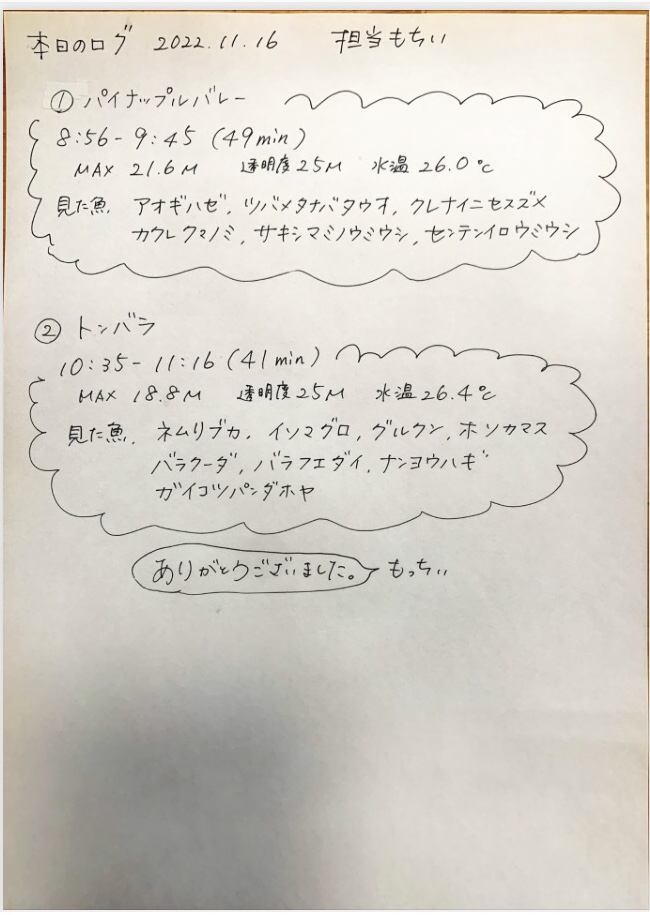 本日のログ 2022.11.16 担当もちぃ
① パイナップルバレー
8:56-9:45 (49min)
MAX 21.6M 透明度25M 水温26.0℃
見た魚 アオギハゼ, ツバメタナバタウオ, クレナイニセスズメ
カクレクマノミ, サキシマミノウミウシ, センテンイロウミウシ
② トンバラ
10:35-11:16 (41min)
MAX 18.8M 透明度25M 水温26.4℃
見た魚, ネムリブカ, イソマグロ, グルクン, ホソカマス
バラクーダ, バラフエダイ, ナンヨウハギ
ガイコツパンダホヤ
ありがとうございました。 もっちぃ